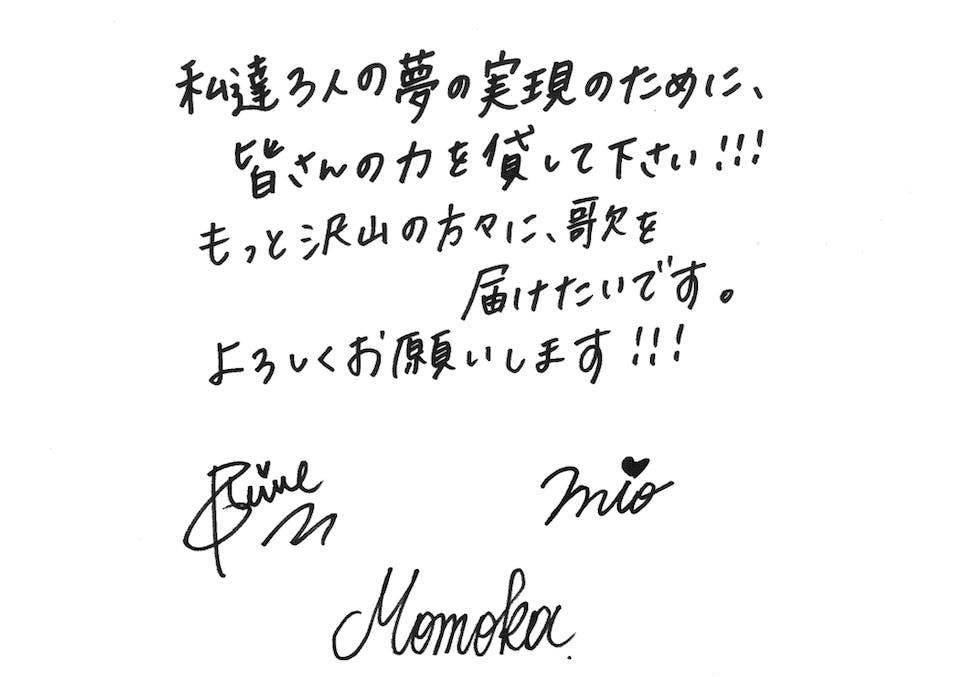 私達3人の夢の実現のために、
皆さんの力を貸して下さい!!!
もっと沢山の方々に、歌を
届けたいです。
よろしくお願いします!!!
mio
Momoka.